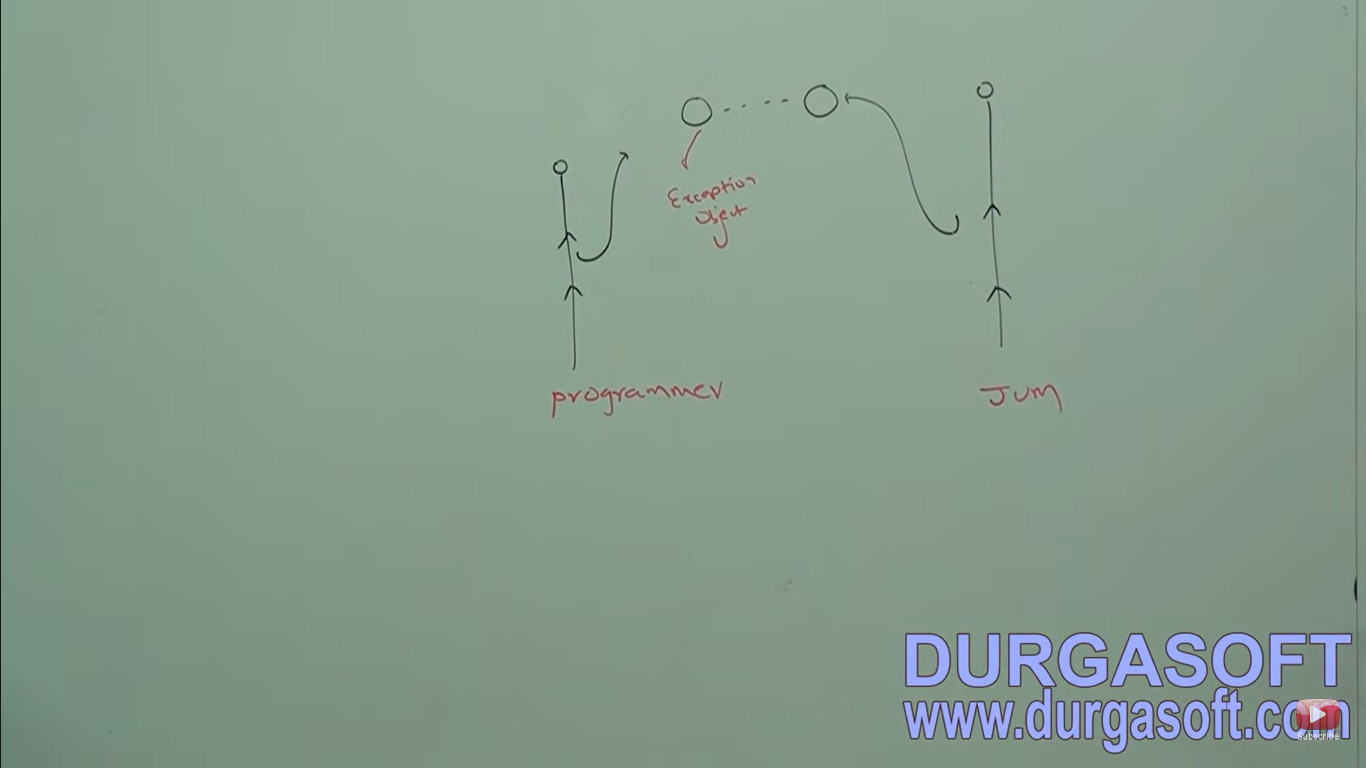 Exception
object
programmer
Jvm
DURGASOFT
www.durgasoft.com
Subscribe